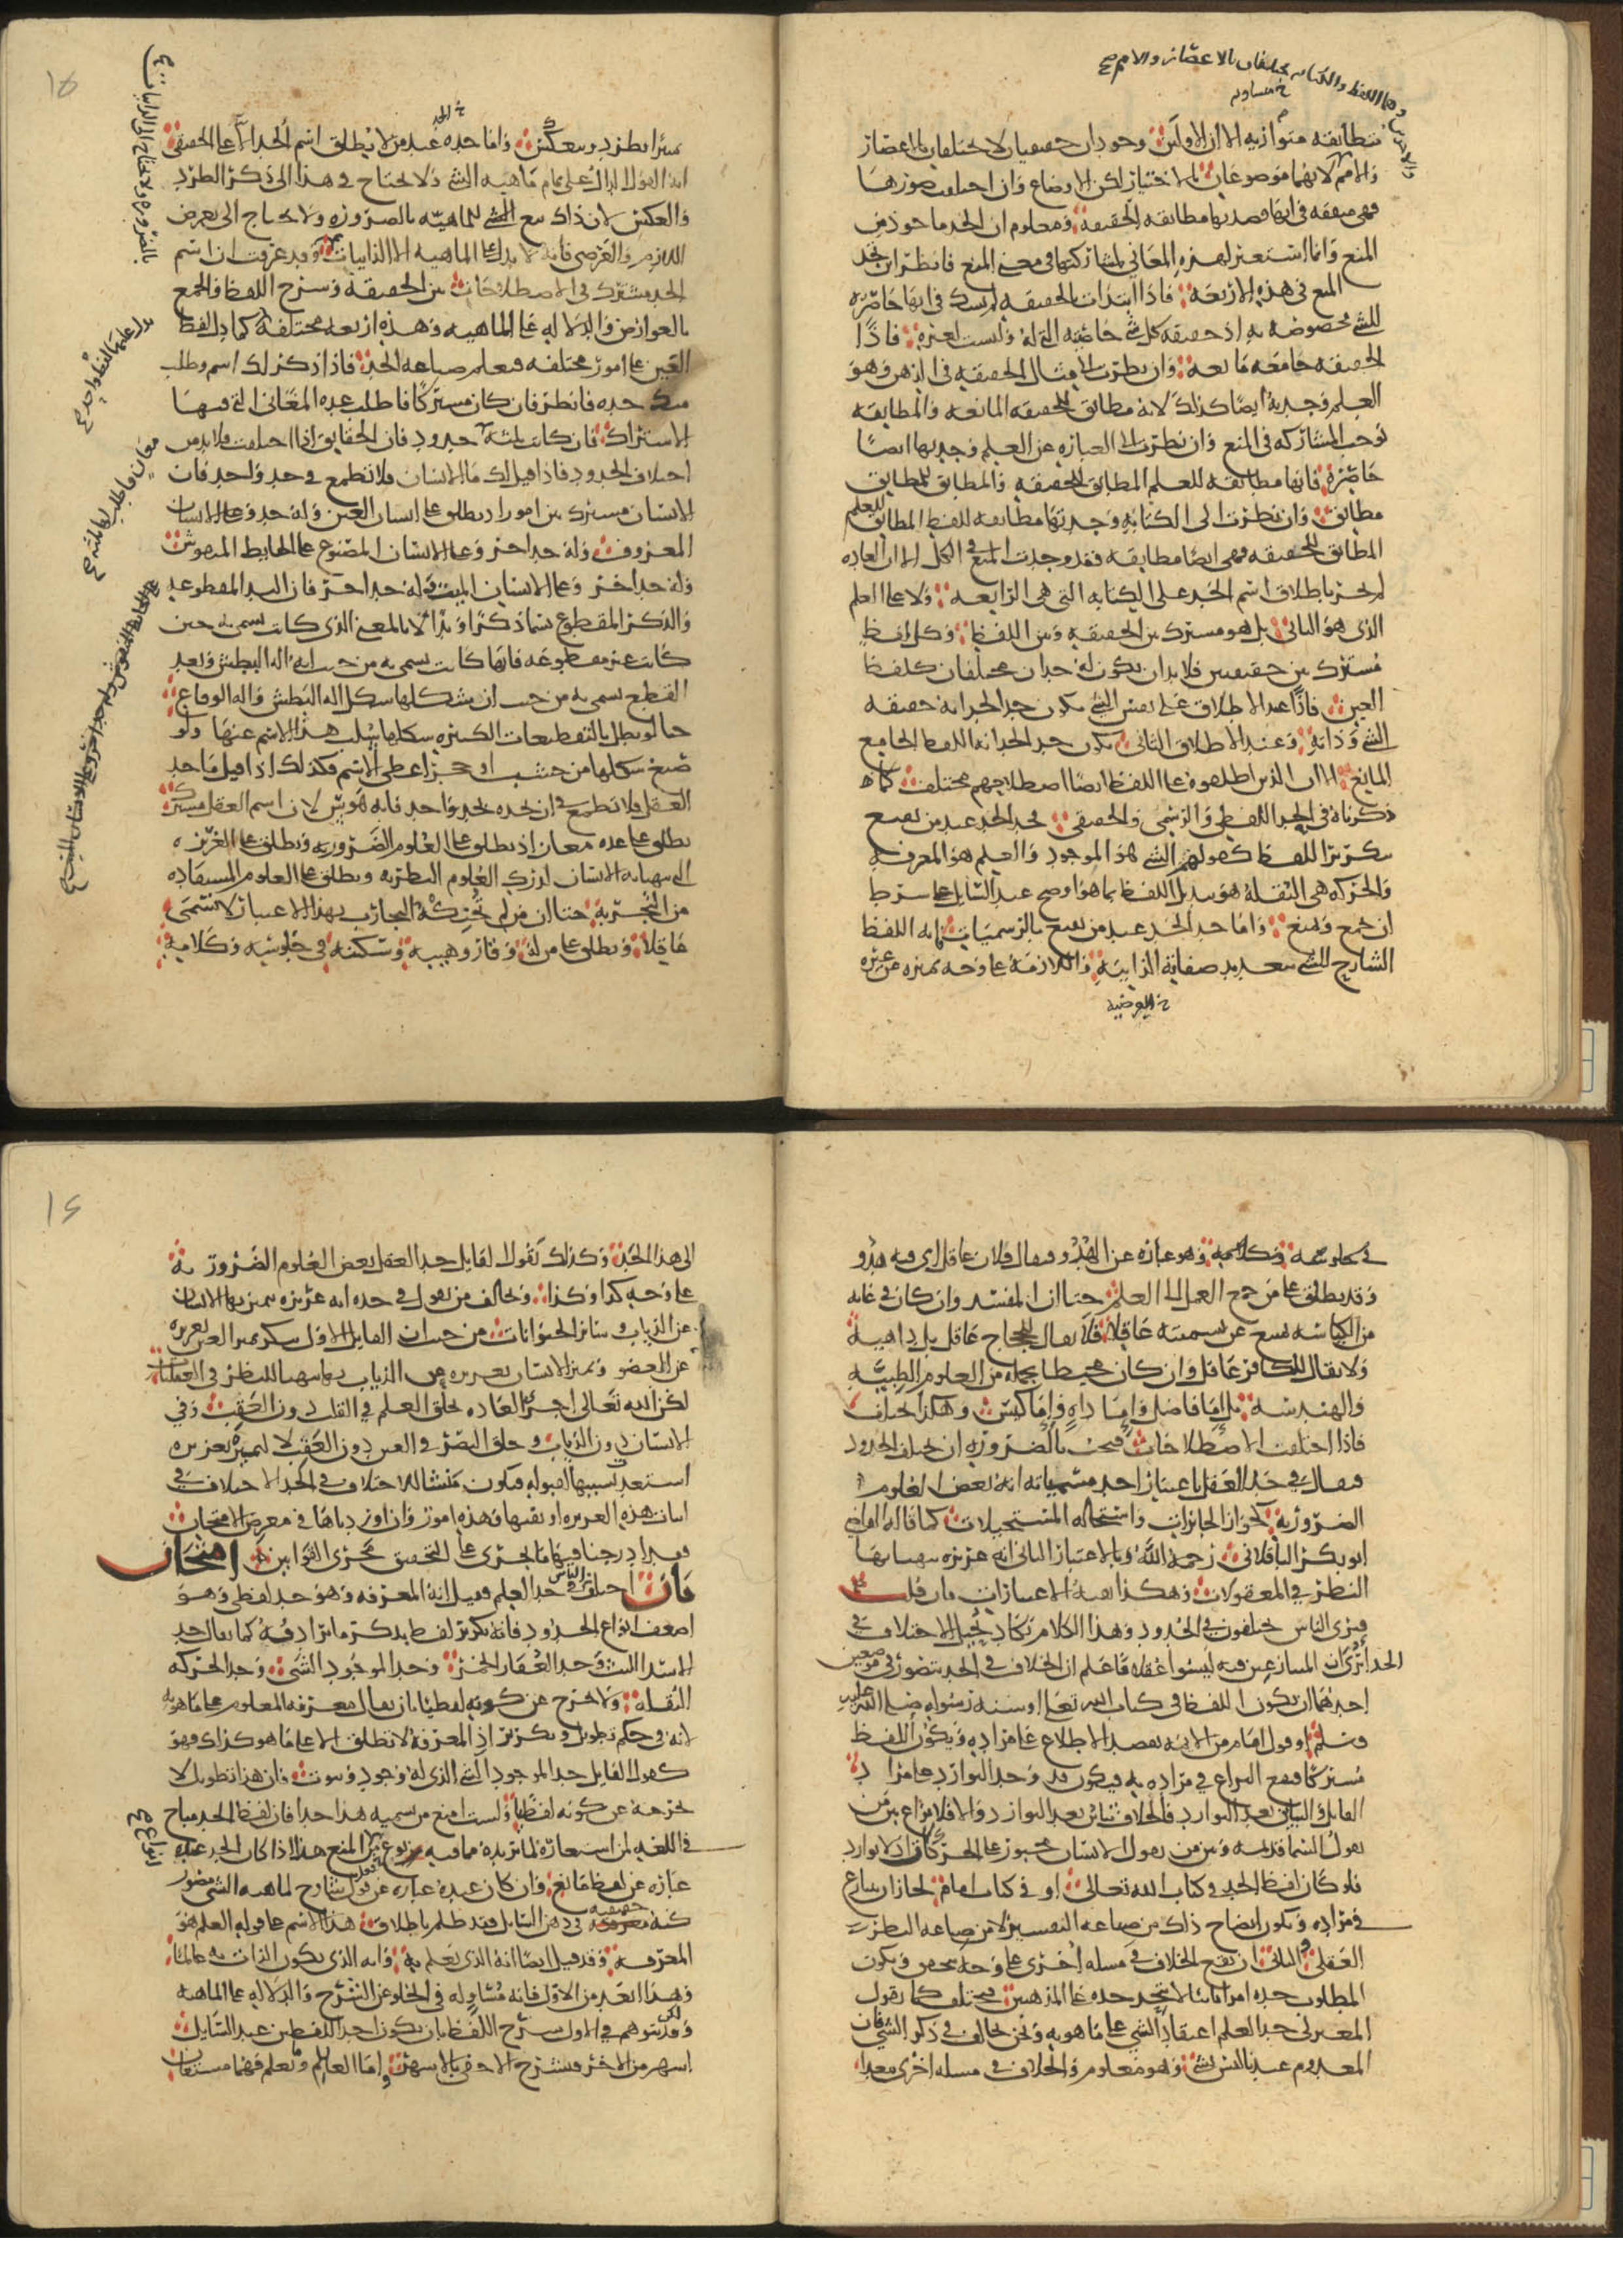 والاخرين وهما اللفظ والكتابة يختلفان بالاعصار والامم صح
خ متساوية
متطابقة متوازية الا ان الاولين وجودان حقيقيان لا يختلفان بالاعصار
والامم لانهما موضوعان بالاختيار لكن الاوضاع وان اختلفت صورها
فهي متفقة في انها قصد بها مطابقة الحقيقة ومعلوم ان الحد ماخوذ من
المنع وانما استعير لهذه المعاني لمشاركتها في معنى المنع فانظر اين تجد
المنع في هذه الاربعة فاذا ابتدات بالحقيقة لم تشك في انها حاصرة
للشي مخصوصة به اذ حقيقة كل شي خاصيته التي له وليست لغيره فاذا
الحقيقة جامعة مانعة وان نظرت الى مثال الحقيقة في الذهن وهو
العلم وجدته ايضا كذلك لانه مطابق للحقيقة المانعة والمطابقة
توجب المشاركة في المنع وان نظرت الى العبارة عن العلم وجدتها ايضا
حاصرة فانها مطابقة للعلم المطابق للحقيقة والمطابق للمطابق
مطابق وان نظرت الى الكتابة وجدتها مطابقة للفظ المطابق للعلم
المطابق للحقيقة فهي ايضا مطابقة فقد وجدت المنع في الكل الا ان العادة
لم تجر باطلاق اسم الحد على الكتابة التي هي الرابعة ولا على العلم
الذي هو الثاني بل هو مشترك بين الحقيقة وبين اللفظ وكل لفظ
مشترك بين حقيقتين فلا بد ان يكون له حدان مختلفان كلفظ
العين فاذا عند الاطلاق على نفس الشي يكون حد الحد انه حقيقة
الشي وذاته وعند الاطلاق الثاني يكون حد الحد انه اللفظ الجامع
المانع الا ان الذين اطلقوه على اللفظ ايضا اصطلاحهم مختلف كما
ذكرناه في الحد اللفظي والرسمي والحقيقي فحد الحد عند من يقنع
بتكرير اللفظ كقولهم الشي هو الموجود والعلم هو المعرفة
والحركة هي النقلة هو تبديل اللفظ بما هو اوضح عند السائل على شرط
ان يجمع ويمنع واما حد الحد عند من يقنع بالرسميات فانه اللفظ
الشارح للشي بتعديد صفاته الذاتية واللازمة على وجه يميزه عن غيره
خ العرضية
خ الحد
تمييزا يطرد وينعكس واما حده عند من لا يطلق اسم الحد الا على الحقيقي
انه القول الدال على تمام ماهية الشي ولا يحتاج في هذا الى ذكر الطرد
والعكس لان ذلك تبع للشي للماهية بالضرورة ولا يحتاج الى تعرض
اللازم والعرضي فانه لا يدل على الماهية الا الذاتيات وقد عرفت ان اسم
الحد مشترك في الاصطلاحات بين الحقيقة وشرح اللفظ والجمع
بالعوارض والدلالة على الماهية وهذه اربعة مختلفة كما دل لفظ
العين على امور مختلفة فتعلم صناعة الحد فاذا ذكر لك اسم وطلب
منك حده فانظر فان كان مشتركا فاطلب عدة المعاني التي فيها
الاشتراك فان كانت ثلثة حدود فان الحقايق اذا اختلفت فلا بد من
اختلاف الحدود فاذا قيل لك ما الانسان فلا تطمع في حد واحد فان
الانسان مشترك بين امور اذ يطلق على انسان العين وله حد وعلى الانسان
المعروف وله حد اخر وعلى الانسان المصنوع على الحايط المنقوش
وله حد اخر وعلى الانسان الميت وله حد اخر فان اليد المقطوعة
والذكر المقطوع يسما ذكرا ويدا لا بالمعنى الذي كانت تسمى به حين
كانت غير مقطوعة فانها كانت تسمى به من حيث انها الة البطش وبعد
القطع تسمى به من حيث ان شكلها شكل الة البطش والة الوقاع
حتا لو بطل بالتقطيعات الكثيرة شكلها سلب هذا الاسم عنها ولو
صنع شكلها من خشب او حجر اعطي الاسم فكذلك اذا قيل ما حد
العقل فلا تطمع في ان تحده بحد واحد فانه هوس لان اسم العقل مشترك
يطلق على عدة معان اذ يطلق على العلوم الضرورية ويطلق على الغريزة
التي يتهيا بها الانسان لدرك العلوم النظرية ويطلق على العلوم المستفادة
من التجربة حتا ان من لم تحنكه التجارب بهذا الاعتبار لا يسمى
عاقلا ويطلق على من له وقار وهيبة وسكينة في جلوسه وكلامه
بالضرورة ولا يحتاج الى الذاتيات صح
يدل عليها لفظ واحد صح
معان فاطلب لها ثلثة صح
في جلوسه وكلامه وهو عبارة عن الهدو فيقال فلان عاقل اي فيه هدو
وقد يطلق على من جمع العمل الى العلم حتا ان المفسد وان كان في غاية
من الكياسة يمنع عن تسميته عاقلا فلا يقال للحجاج عاقل بل داهية
ولا يقال للكافر عاقل وان كان محيطا بجملة من العلوم الطبية
والهندسة بل اما فاضل واما داه واما كيس وهكذا اختلف
فاذا اختلفت الاصطلاحات فيجب بالضرورة ان تختلف الحدود
فيقال في حد العقل باعتبار احد مسمياته انه بعض العلوم
الضرورية كجواز الجائزات واستحالة المستحيلات كما قاله القاضي
ابو بكر الباقلاني رحمه الله وبالاعتبار الثاني انه غريزة يتهيا بها
النظر في المعقولات وهكذا بقية الاعتبارات فان قلت
فنرى الناس يختلفون في الحدود وهذا الكلام يكاد يحيل الاختلاف في
الحد اترى ان المتنازعين فيه ليسوا عقلا فاعلم ان الخلاف في الحد يتصور في موضعين
احدهما ان يكون اللفظ في كتاب الله تعالى او سنة رسوله صلى الله عليه
وسلم او قول امام من الايمة يقصد الاطلاع على مراده ويكون اللفظ
مشتركا فيقع النزاع في مراده به فيكون قد وجد التوارد على مراد
القايل والتباين بعد التوارد فالخلاف تباين بعد التوارد والا فلا نزاع بين من
يقول السما قديمة وبين من يقول الانسان مجبور على الحركات اذ لا توارد
فلو كان لفظ الحد في كتاب الله تعالى او في كتاب امام لجاز ان يتنازع
في مراده ويكون ايضاح ذلك من صناعة التفسير لا من صناعة النظر
العقلي والثاني ان يقع الخلاف في مسلة اخرى على وجه محقق ويكون
المطلوب حده امرا ثانيا لا يتحد حده على المذهبين فيختلف كما يقول
المعتزلي حد العلم اعتقاد الشي على ما هو به ونحن نخالف في ذكر الشي فان
المعدوم عندنا ليس بشي وهو معلوم والخلاف في مسلة اخرى يتعدا
الى هذا الحد وكذلك يقول القايل حد العقل بعض العلوم الضرورية
على وجه كذا وكذا ونخالف من يقول في حده انه غريزة يتميز بها الانسان
عن الذباب وساير الحيوانات من حيث ان القايل الاول ينكر تميز العين بغريزة
عن العضو وتميز الانسان بغريزة عن الذباب بها يتهيا للنظر في العقليات
لكن الله تعالى اجرى العادة بخلق العلم في القلب دون العقب وفي
الانسان دون الذباب وخلق البصر في العين دون العقب لا لتميزه بغريزة
استعد بسببها لقبوله فيكون منشا الاختلاف في الحد الاختلاف في
اثبات هذه الغريزة او نفيها فهذه امور وان اوردناها في معرض الامتحان
فقد ادرجنا فيها ما يجري على التحقيق مجرى القوانين امتحان
ثان اختلف الناس في حد العلم فقيل انه المعرفة وهو حد لفظي وهو
اضعف انواع الحدود فانه تكرير لفظ بذكر ما يرادفه كما يقال حد
الاسد الليث وحد العقار الخمر وحد الموجود الشي وحد الحركة
النقلة ولا يخرج عن كونه لفظيا بان يقال معرفة المعلوم على ما هو به
لانه في حكم تطويل وتكرير اذ المعرفة لا تطلق الا على ما هو كذلك فهو
كقول القايل حد الموجود الشي الذي له وجود وثبوت فان هذا تطويل لا
يخرجه عن كونه لفظيا ولست امنع من تسمية هذا حدا فان لفظ الحد مباح
في اللغة لمن استعاره لما يريده مما فيه نوع من المنع هذا اذا كان الحد عنده
عبارة عن لفظ مانع وان كان عنده عبارة عن قول شارح لماهية الشي مصور
كنه حقيقته في ذهن السايل فقد ظلم باطلاق هذا الاسم على قوله العلم هو
المعرفة وقد قيل ايضا انه الذي يعلم به وانه الذي يكون الذات به عالما
وهذا ابعد من الاول فانه مساو له في الخلو عن الشرح والدلالة على الماهية
ولكن قد يتوهم في الاول شرح اللفظ بان يكون احد اللفظين عند السايل
اشهر من الاخر فيشرح الاخفى بالاشهر اما العالم ويعلم فهما مشتقان
انواع صح